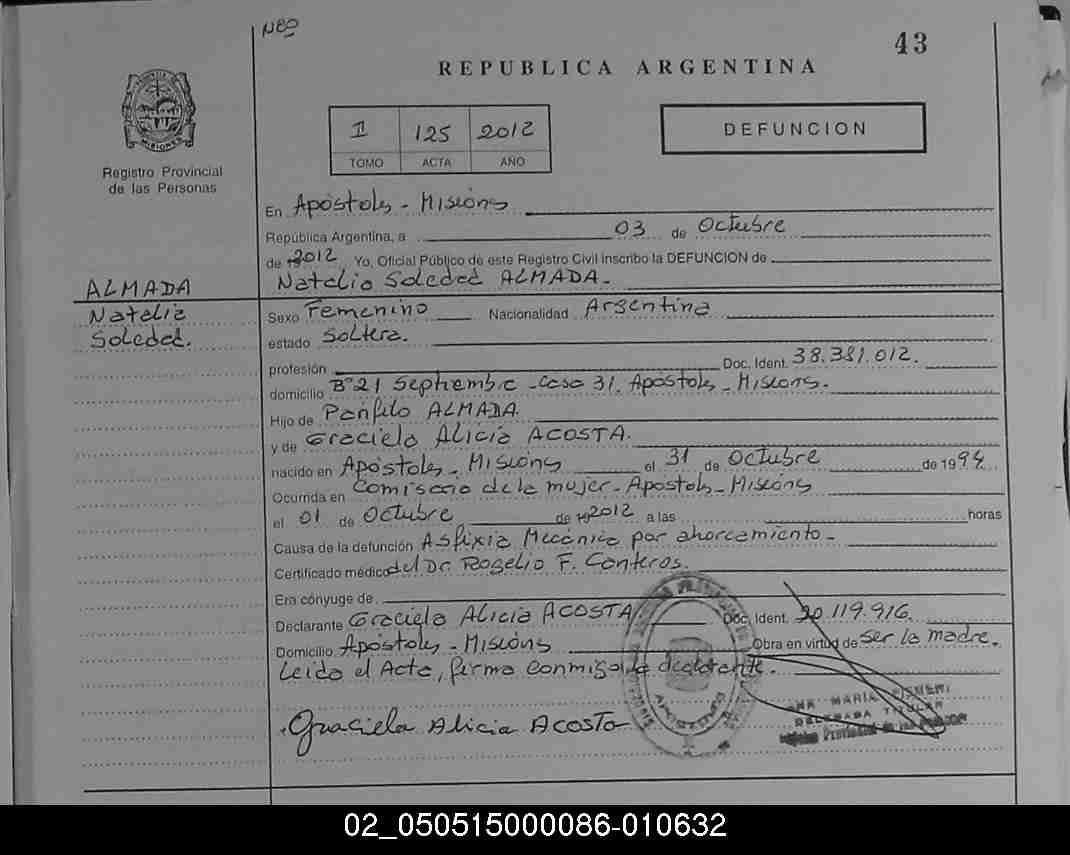 Nº 80
43
REPUBLICA ARGENTINA
1 125 2012
TOMO ACTA AÑO
DEFUNCION
MISIONES
Registro Provincial
de las Personas
En Apóstoles - Misiones
República Argentina, a 03 de Octubre
de 2012 Yo, Oficial Público de este Registro Civil inscribo la DEFUNCION de
Natalia Soledad ALMADA.
ALMADA
Natalia
Soledad.
Sexo Femenino Nacionalidad Argentina
estado Soltera.
profesión Doc. Ident. 38.381.012.
domicilio Bº 21 Septiembre - Casa 31. Apóstoles - Misiones.
Hijo de Panfilo ALMADA.
y de Graciela Alicia ACOSTA.
nacido en Apóstoles - Misiones el 31 de Octubre de 1994.
Ocurrida en Comisaria de la mujer - Apóstoles - Misiones
el 01 de Octubre de 2012 a las horas
Causa de la defunción Asfixia Mecánica por ahorcamiento -
Certificado médico del Dr. Rogelio F. Conteros.
Era cónyuge de
Declarante Graciela Alicia ACOSTA Doc. Ident. 20.119.916.
Domicilio Apóstoles - Misiones Obra en virtud de ser la madre.
Leida el Acta, firma conmigo la declarante.
Graciela Alicia Acosta
ANA MARIA
DELEGADA TITULAR
Registro Provincial de las Personas
APOSTOLES
02_050515000086-010632